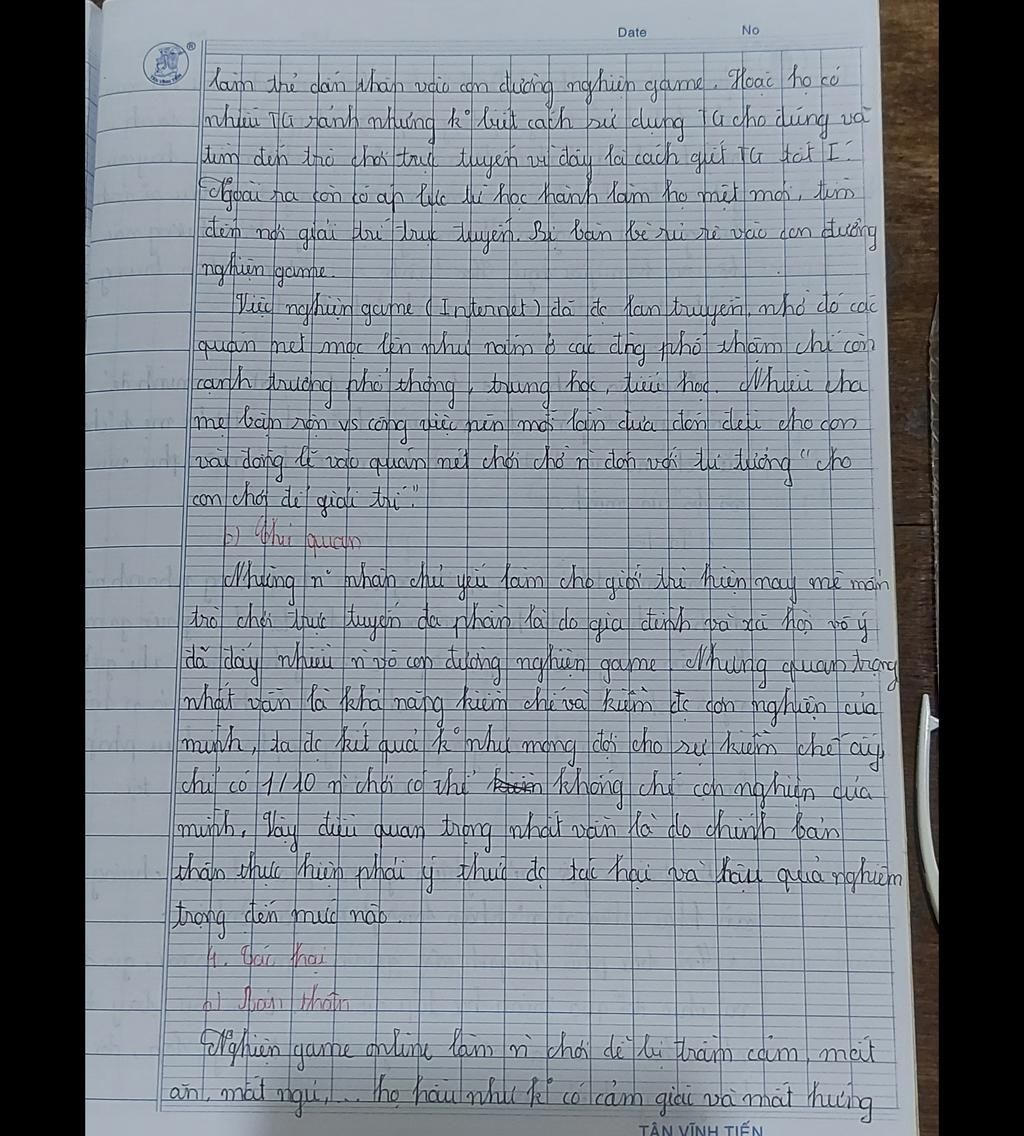 Date No
lầm thẻ dấn thân vào con đường nghiện game. Hoặc họ có
nhiều TG rảnh nhưng k° biết cách sử dụng TG cho đúng và
tìm đến trò chơi trực tuyến vì đây là cách giết TG tốt I.
Ngoài ra còn có áp lực từ học hành làm họ mệt mỏi, tìm
đến nơi giải trí trực tuyến. Bị bạn bè rủi rê vào con đường
nghiện game.
Việc nghiện game (Internet) đã đc lan truyền, nhờ đó các
quán net mọc lên như nấm ở các đ'ng phố thậm chí còn
cạnh trường phổ thông, trung học, tiểu học. Nhiều cha
mẹ bận rộn vs công việc nên mỗi lần đưa đón đều cho con
vài đồng lẻ vào quán nét chơi chờ n' đón với tư tưởng "cho
con chơi để giải trí".
b) Chủ quan
Những n° nhân chủ yếu làm cho giới trẻ hiện nay mê mẩn
trò chơi trực tuyến đa phần là do gia đình và xã hội vô ý
đã đẩy nhiều n' vô con đường nghiện game. Nhưng quan trọng
nhất vẫn là khả năng kiềm chế và kiểm đc cơn nghiện của
mình, ta đc kết quả k° như mong đợi cho sự kiềm chế ấy,
chỉ có 1/10 n' chơi có thể khống chế cơn nghiện của
mình. Vậy điều quan trọng nhất vẫn là do chính bản
thân thực hiện phải ý thức đc tác hại và hậu quả nghiêm
trọng đến mức nào.
4. Tác hại
a) Bản thân
Nghiện game online làm n' chơi dễ bị trầm cảm, mất
ăn, mất ngủ,... họ hầu như k° có cảm giác và mất hướng
TÂN VĨNH TIẾN